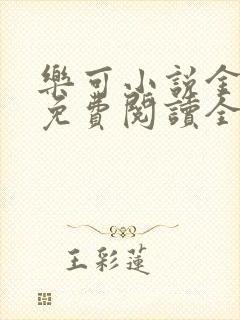 樂可小說全
免費閱讀全
王彩蓮